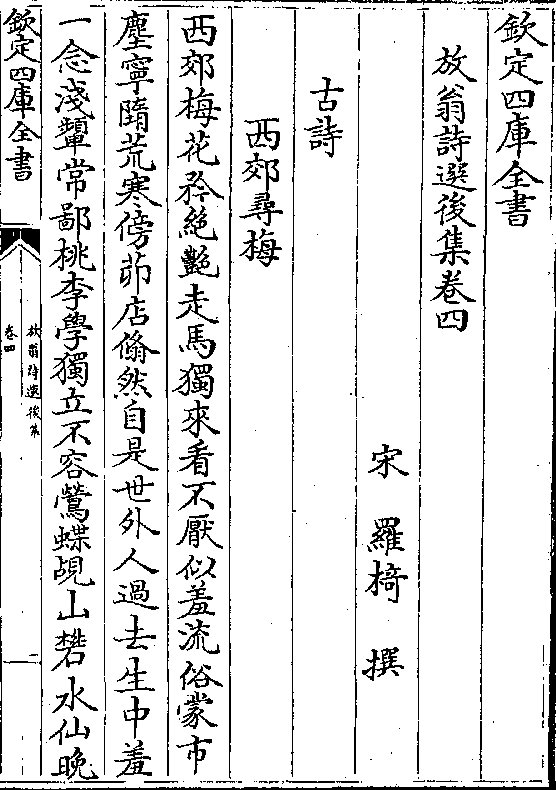 欽定四庫全書
放翁詩選後集卷四
宋　羅椅　撰
古詩
西郊尋梅
西郊梅花矜絶艷走馬獨來看不厭似羞流俗蒙市
塵寧隋荒寒傍茆店翛然自是世外人過去生中差
一念淺顰常鄙桃李學獨立不容鶯蝶覘山礬水仙晚
欽定四庫全書
放翁詩選後集
卷四
一